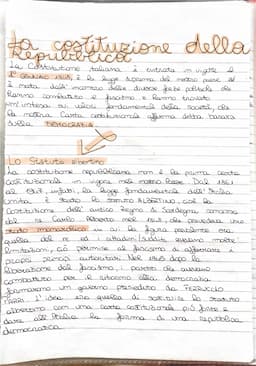 La costituzione della
Repubblica
La Costituzione italiana è entrata in vigore il
1° gennaio 1948, è la legge suprema del nostro paese ed
è nata dall'incontro delle diverse forze politiche che
hanno combattuto il fascismo e hanno trovato
un'intesa sui valori fondamentali della società, che
la nostra Carta costituzionale afferma della basata
sulla DEMOCRAZIA
Lo Statuto albertino
La costituzione repubblicana non è la prima carta
costituzionale in vigore nel nostro Paese. Dal 1861
al 1947, infatti, la legge fondamentale dell'Italia
unita, è stato lo STATUTO ALBERTINO, cioè la
Costituzione dell'antico Regno di Sardegna concessa
dal re Carlo Alberto nel 1848 che prevedeva uno
stato monarchico in cui la figura prevalente era
quella del re ed i cittadini/sudditi avevano molte
limitazioni, ciò permise al fascismo di affermare i
propri principi autoritari. Nel 1945 dopo la
liberazione dal fascismo, i partiti che avevano
combattuto per il ritorno alla democrazia
formarono un governo presieduto da FERRUCCIO
PARRI. L'idea era quella di sostituire lo statuto
albertino con una carta costituzionale più forte e
dare all'Italia la forma di una repubblica
democratica